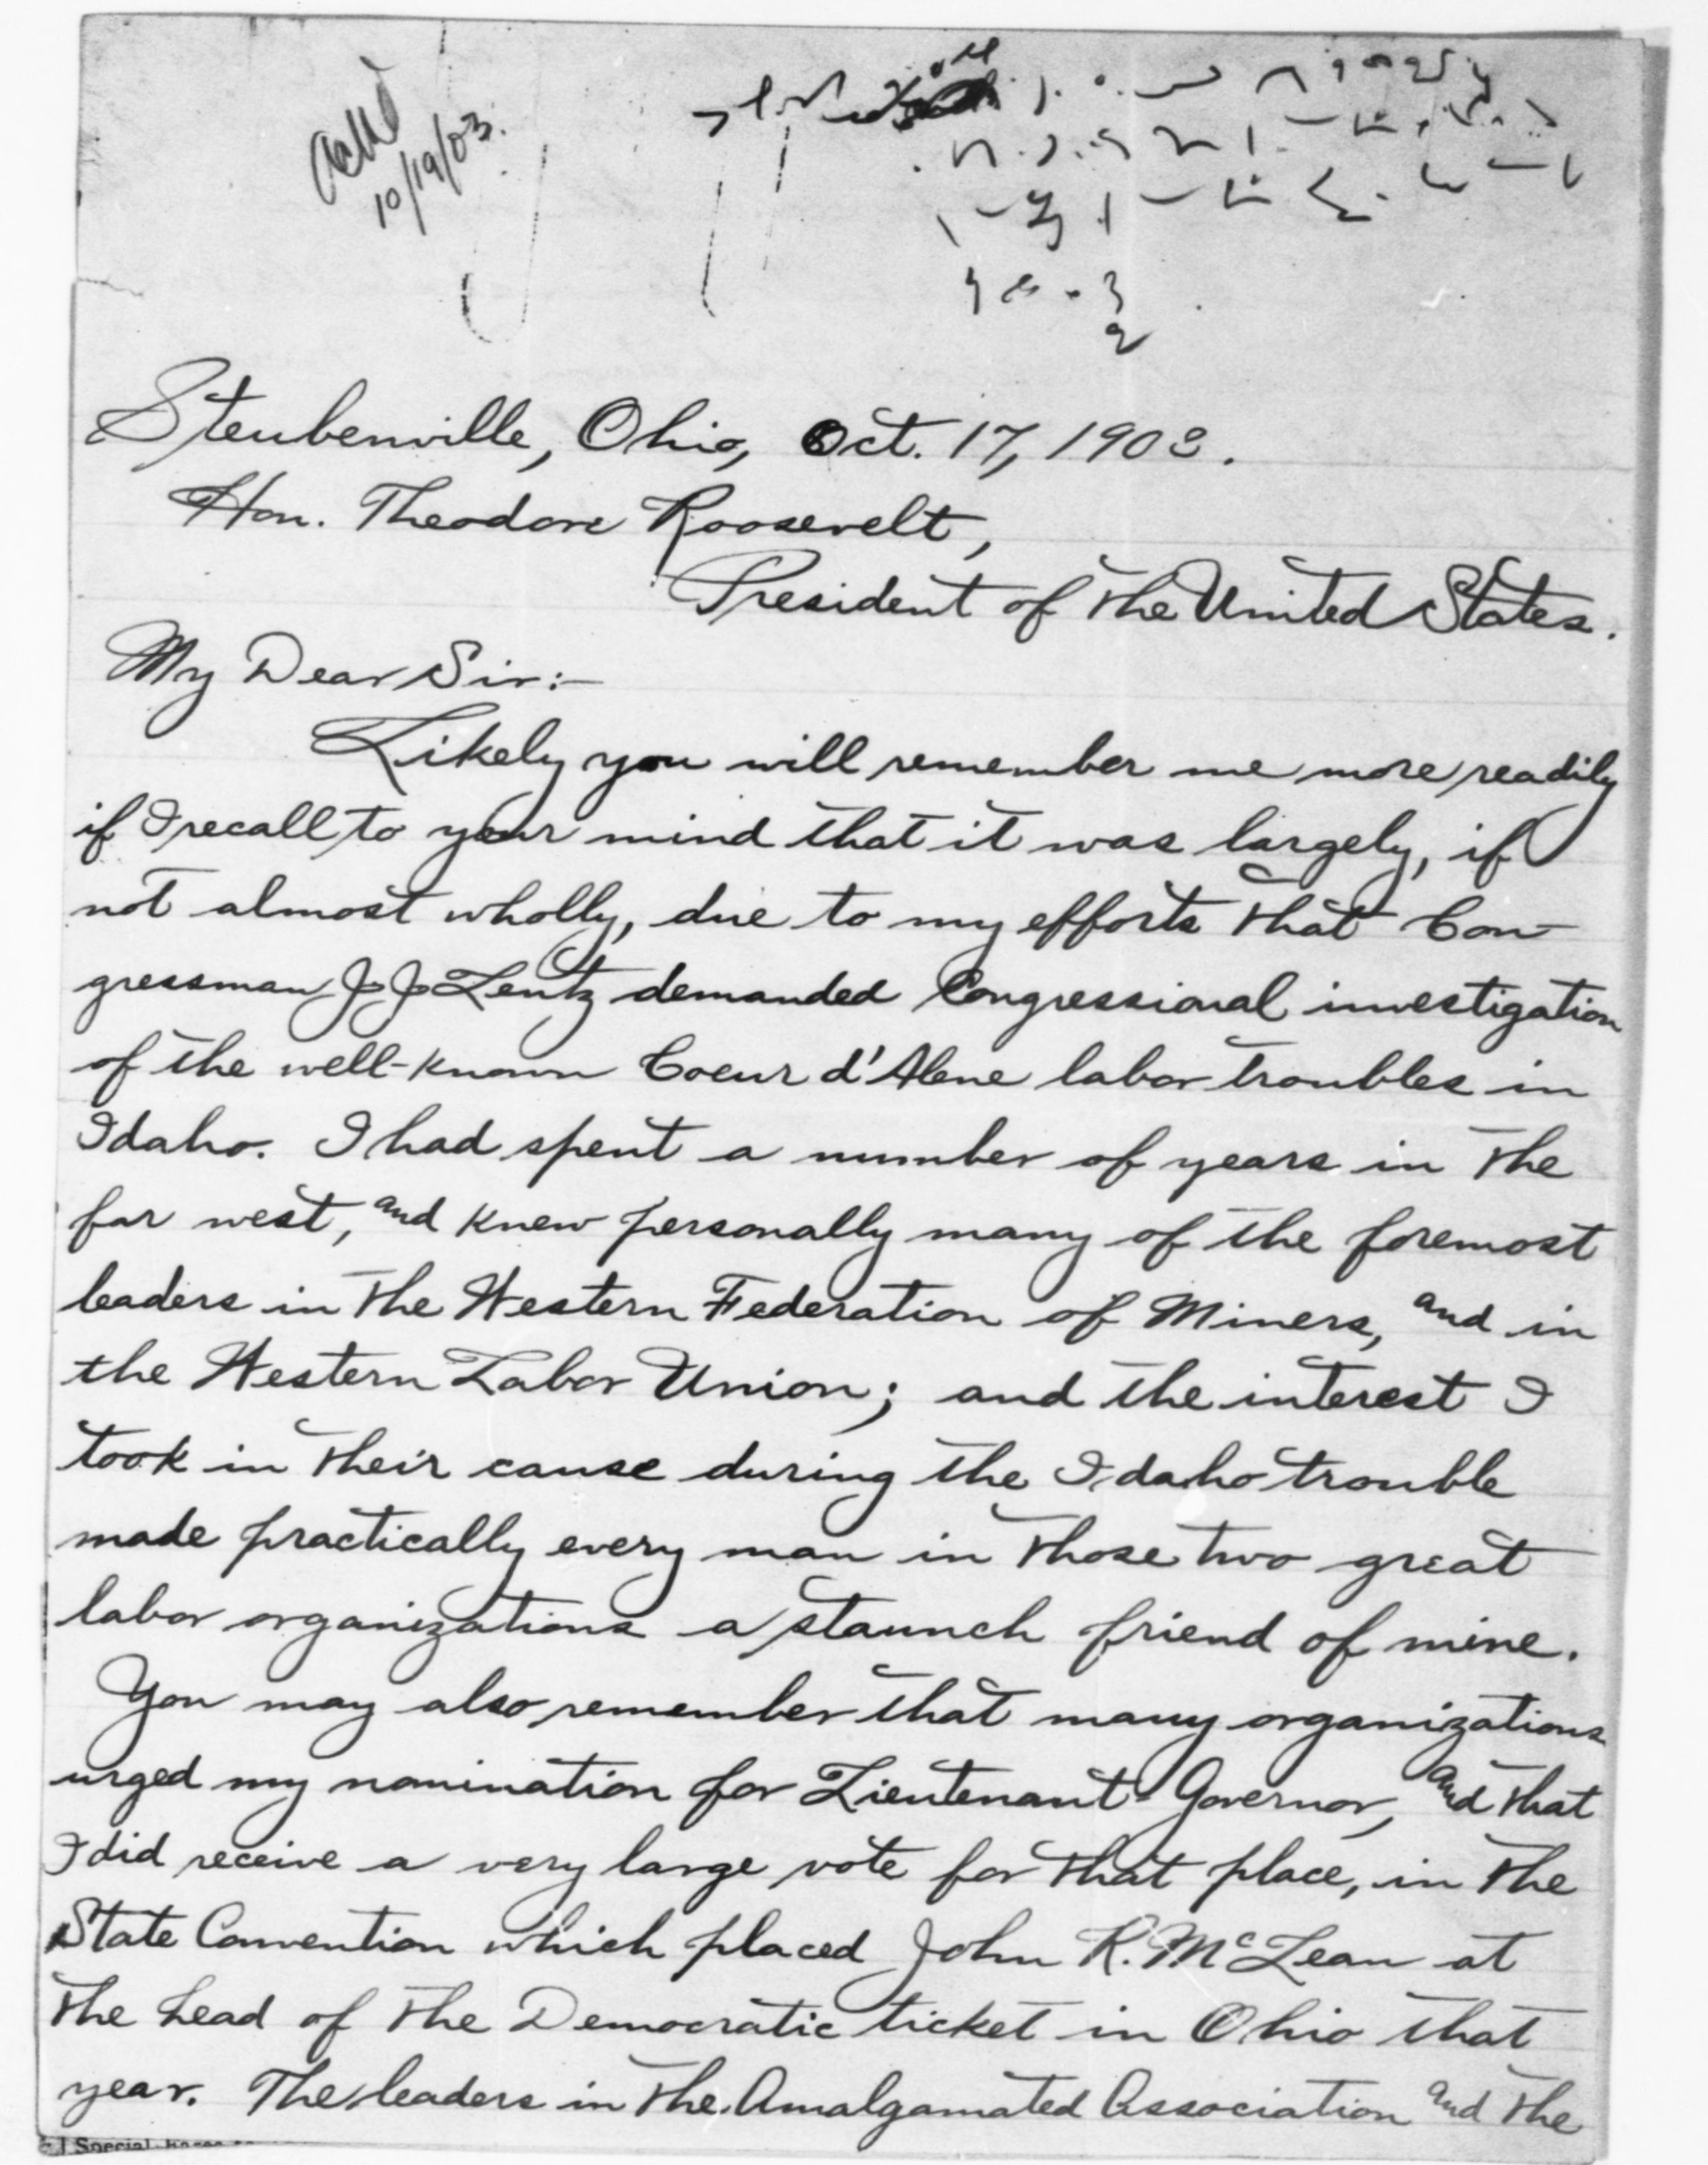 Ack'd
10/19/03.
Steubenville, Ohio, Oct. 17, 1903.
Hon. Theodore Roosevelt,
President of the United States.
My Dear Sir:-
Likely you will remember me more readily
if I recall to your mind that it was largely, if
not almost wholly, due to my efforts that Con-
gressman J J Lentz demanded Congressional investigation
of the well-known Coeur d'Alene labor troubles in
Idaho. I had spent a number of years in the
far west, and knew personally many of the foremost
leaders in the Western Federation of Miners, and in
the Western Labor Union; and the interest I
took in their cause during the Idaho trouble
made practically every man in those two great
labor organizations a staunch friend of mine.
You may also remember that many organizations
urged my nomination for Lieutenant-Governor, and that
I did receive a very large vote for that place, in the
State Convention which placed John R. McLean at
the head of the Democratic ticket in Ohio that
year. The leaders in the Amalgamated Association and the